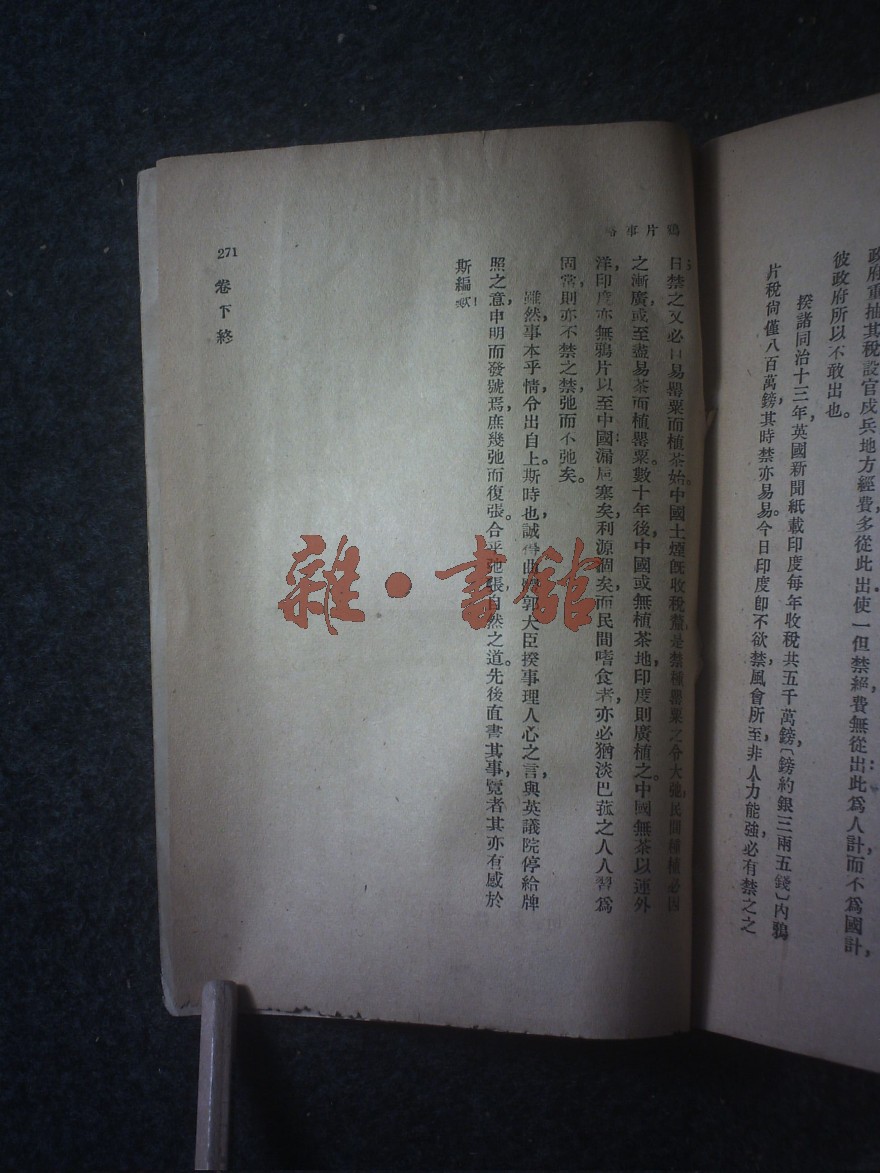 政府重抽其稅設官戍兵地方經費多從此出使一但禁絕費無從出此爲人計而不爲國計，
彼政府所以不敢出也。
揆諸同治十三年，英國新聞紙載印度每年收稅共五千萬鎊，〔鎊約銀三兩五錢〕內鴉
片稅尙僅八百萬鎊其時禁亦易易。今日印度卽不欲禁，風會所至非人力能強，必有禁之之
鴉片事略
日禁之又必口易罌粟而植茶始。中國土煙旣收稅釐，是禁種罌粟之令大弛，民間種植必因
之漸廣，或至盡易茶而植罌粟。數十年後，中國或無植茶地，印度則廣植之。中國無茶以運外
洋，印度亦無鴉片以至中國，漏卮塞矣，利源涸矣，而民間嗜食者，亦必猶淡巴菰之人人習爲
固常，則亦不禁之禁，弛而不弛矣。
雖然，事本乎情，令出自上。斯時也，誠得曲 郭大臣揆事理人心之言，與英議院停給牌
照之意，申明而發號焉，庶幾弛而復張。合乎弛張自然之道。先後直書其事，覽者其亦有感於
斯編歟！
271
卷下終
雜·書館